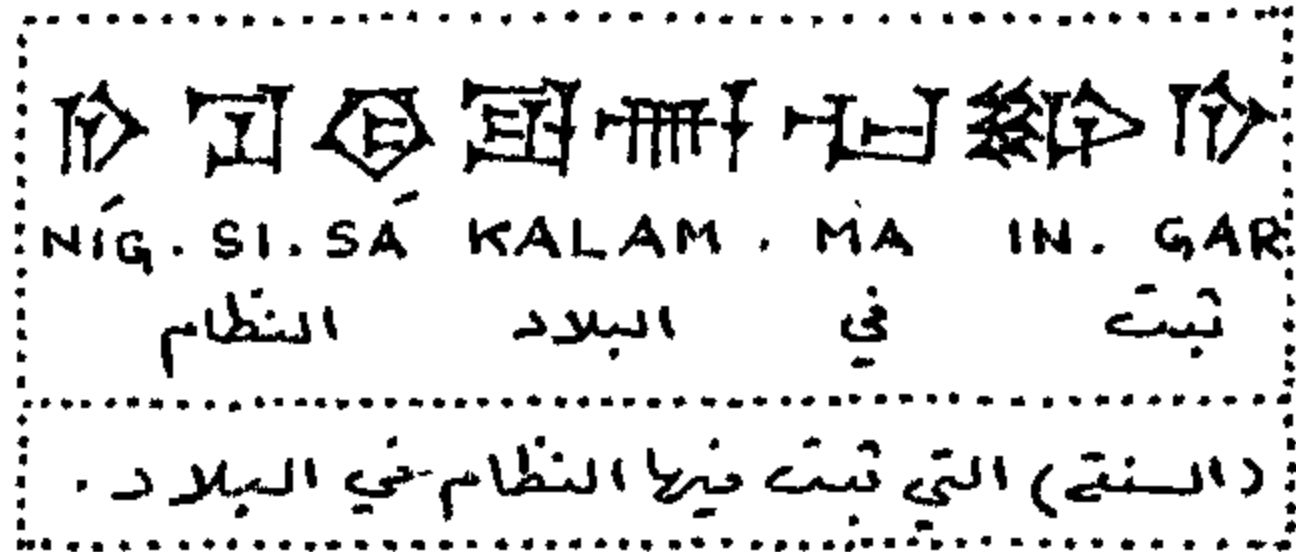 𒃻 𒋛 𒁲 𒈠 𒅔 𒃻
NÍG. SI. SÁ KALAM. MA IN. GAR
ثبت في البلاد النظام
(السنة) التي ثبت فيها النظام في البلاد.